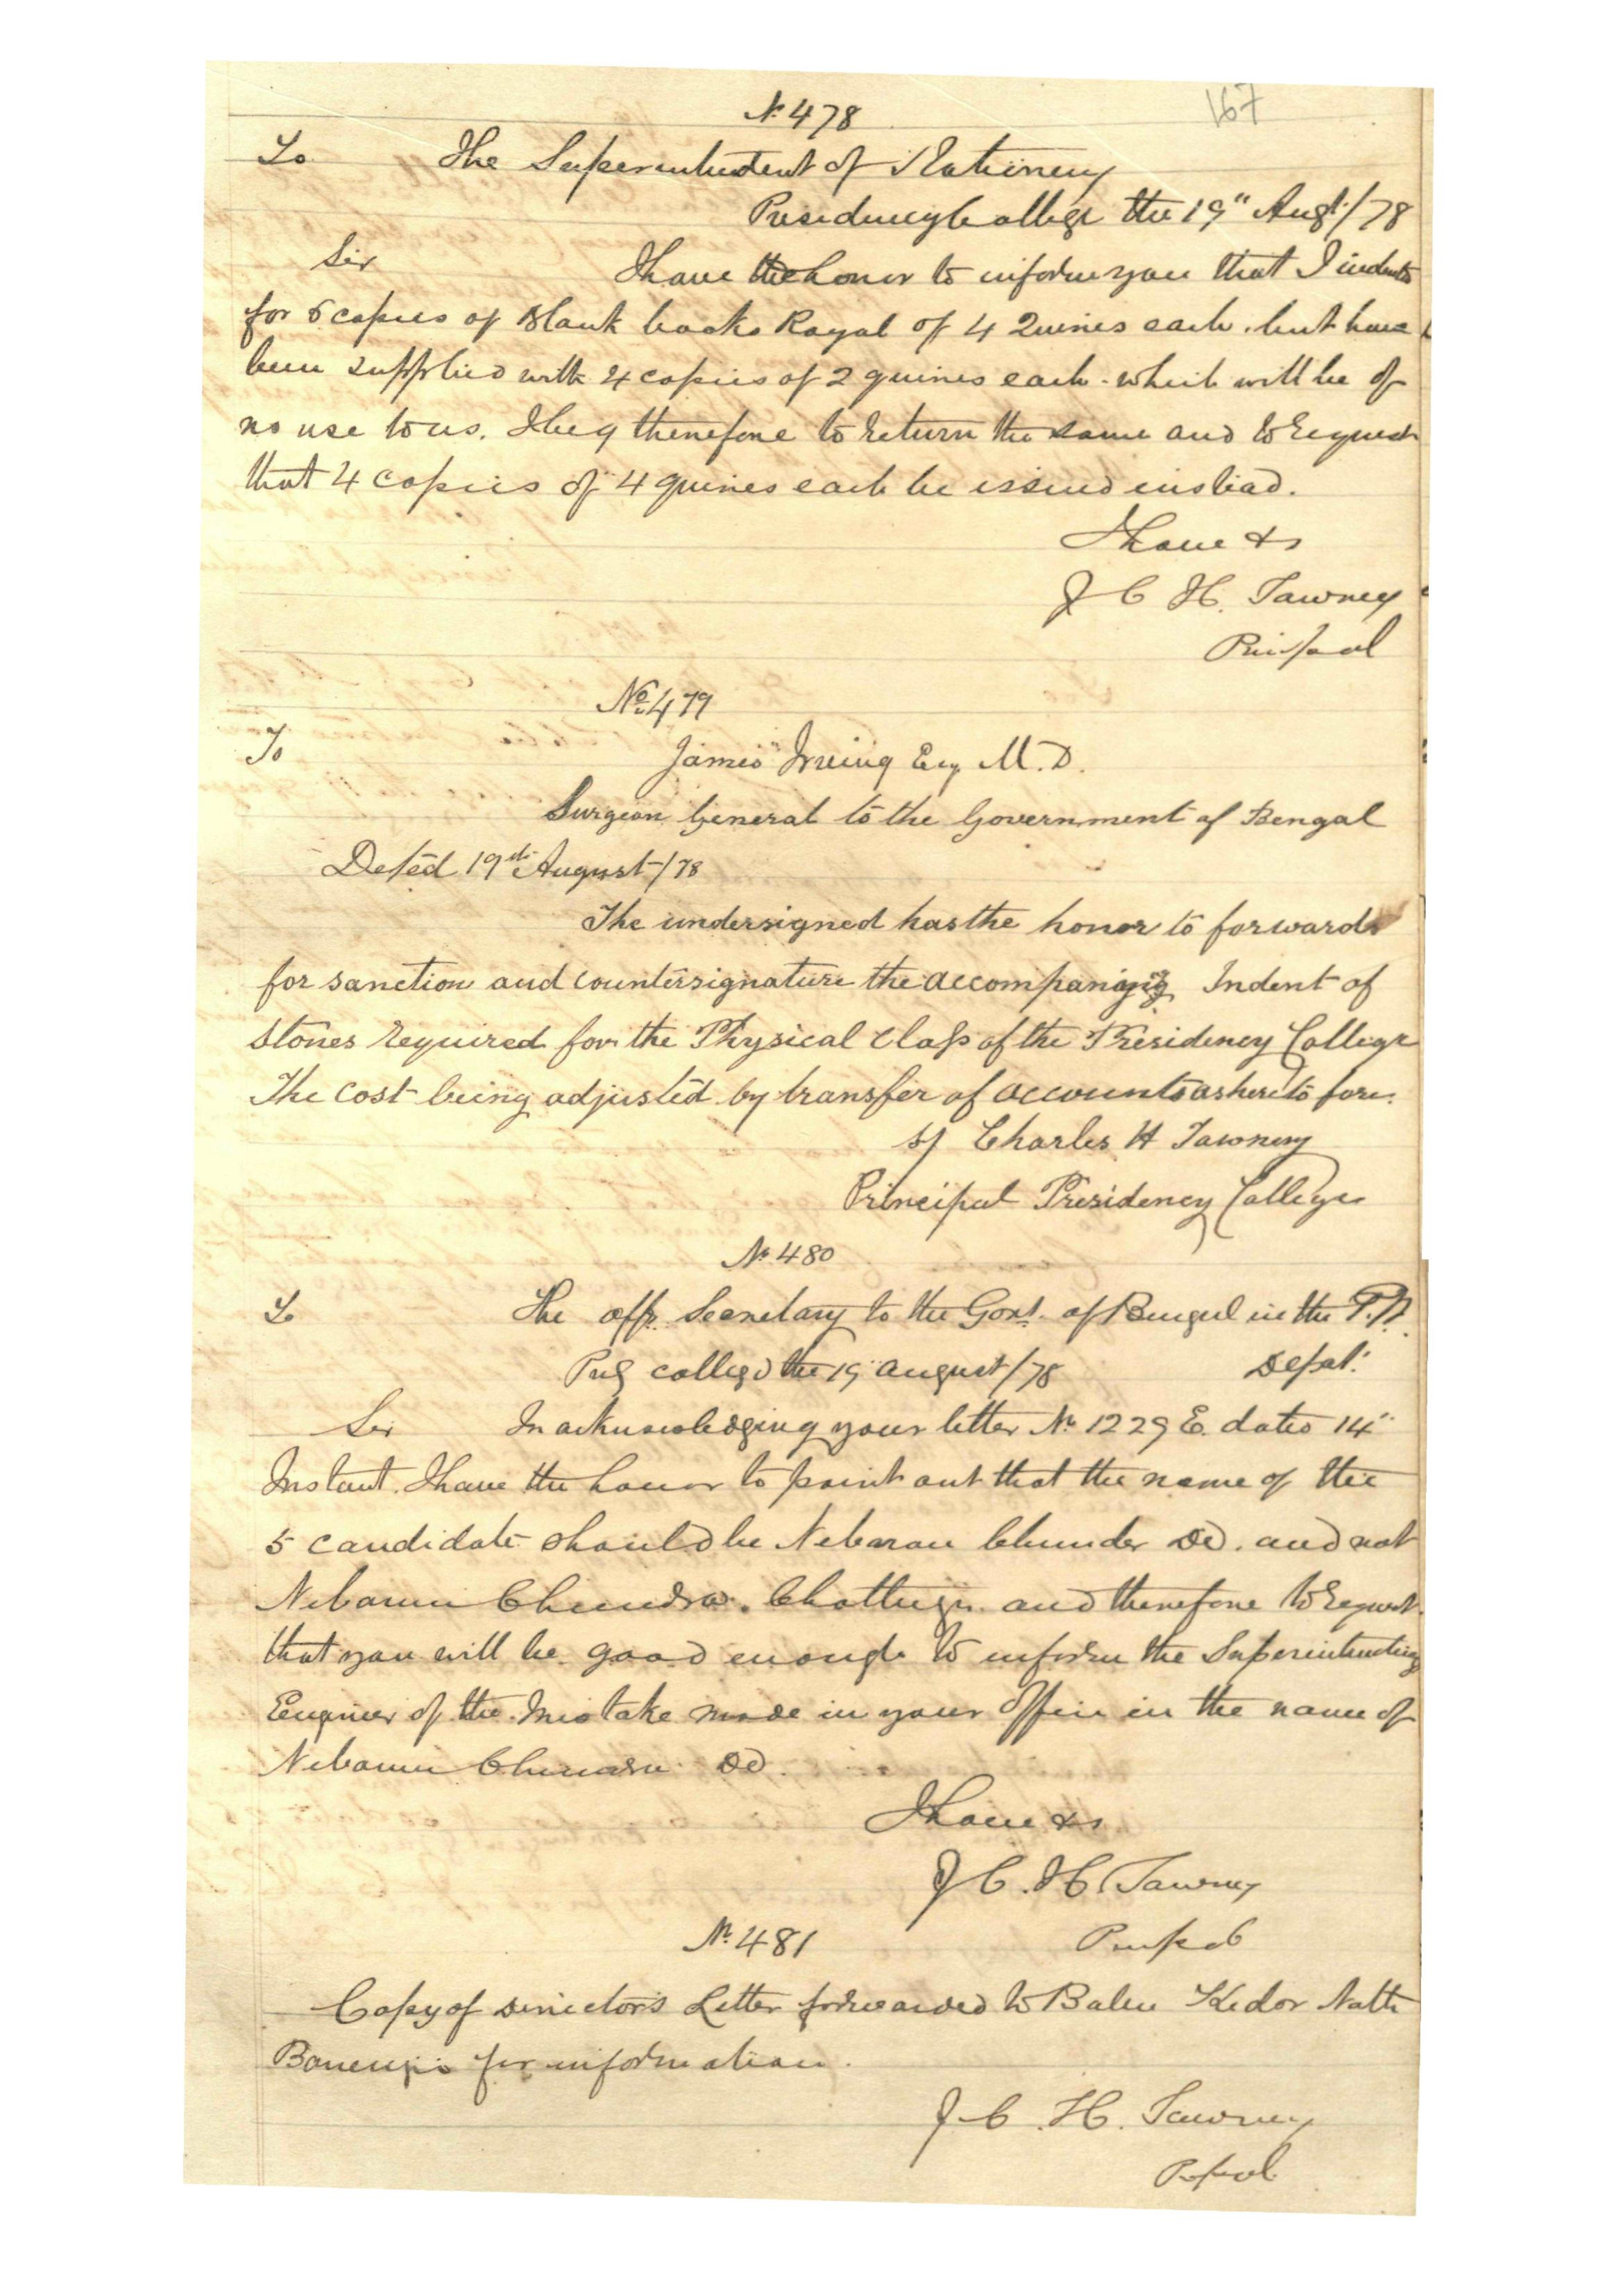 167
No 478
To The Superintendent of Stationery
Presidency College the 19" Augt/78
Sir I have the honor to inform you that I indented
for 5 copies of Blank books Royal of 4 Quires each. but have
been supplied with 4 copies of 2 quires each. which will be of
no use to us. I beg therefore to return the same and to request
that 4 copies of 4 quires each be issued instead.
I have &c
C H. Tawney
Principal
No 479
To
James Irving Esq M.D.
Surgeon General to the Government of Bengal
Dated 19th August/78
The undersigned has the honor to forward
for sanction and countersignature the accompanying Indent of
Stores required for the Physical Class of the Presidency College
The cost being adjusted by transfer of accounts as heretofore.
Charles H Tawney
Principal Presidency College
No 480
To The offg. Secretary to the Govt. of Bengal in the P.W.
college the 19 august/78 Depat.
Sir In acknowledging your letter No 1229 E. dated 14"
Instant. I have the honor to point out that the name of the
5 candidate should be Nebaran Chunder De. and not
Nebarun Chundra. Chatterji and therefore to request
that you will be good enough to inform the Superintending
Engineer of the Mistake made in your Office in the name of
Nebarun Chundra De.
I have &c
C. H. Tawney
Principal
No 481
Copy of Director's Letter forwarded to Babu Kedar Nath
Banerjie for information.
C. H. Tawney